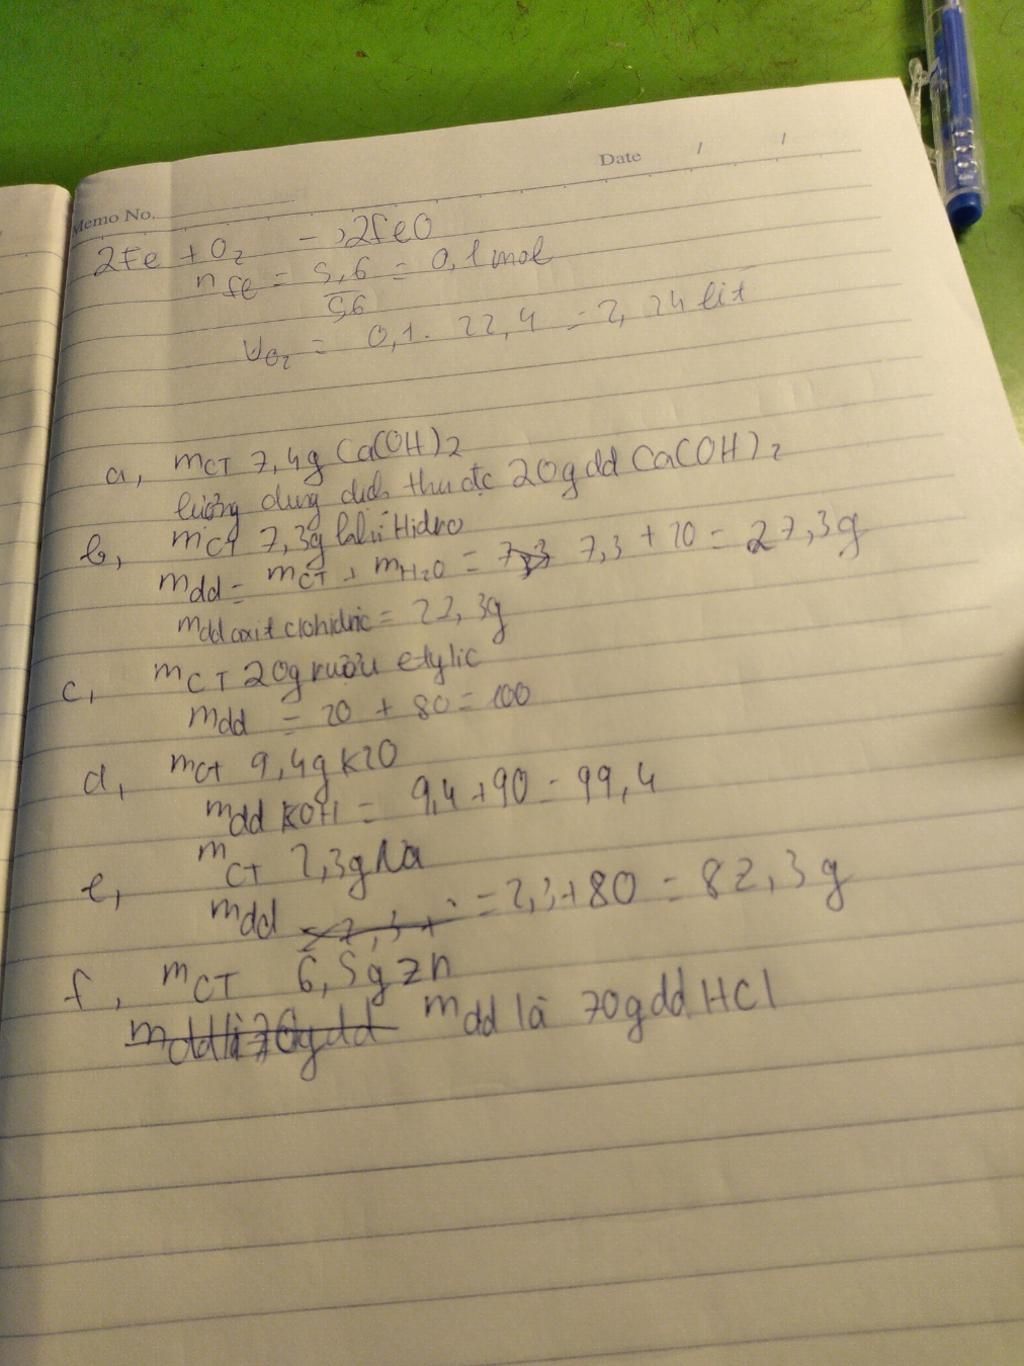 Date / /
Memo No.
2Fe + O₂ -> 2FeO
n Fe = 5,6/56 = 0,1 mol
VO₂ = 0,1. 22,4 = 2,24 lit
a, mCT 7,4g Ca(OH)2
lượng dung dịch thu đc 20g dd Ca(OH)2
b, mCT 7,3g Hidro
mdd = mCT + mH₂O = 7,3 + 20 = 27,3g
mdd axit clohidric = 27,3g
c, mCT 20g rượu etylic
mdd = 20 + 80 = 100
d, mCT 9,4g K2O
mdd KOH = 9,4 + 90 = 99,4
e, mCT 2,3g Na
mdd = 2,3 + 80 = 82,3g
f, mCT 6,5g Zn
mdd là 70g dd mdd là 70g dd HCl